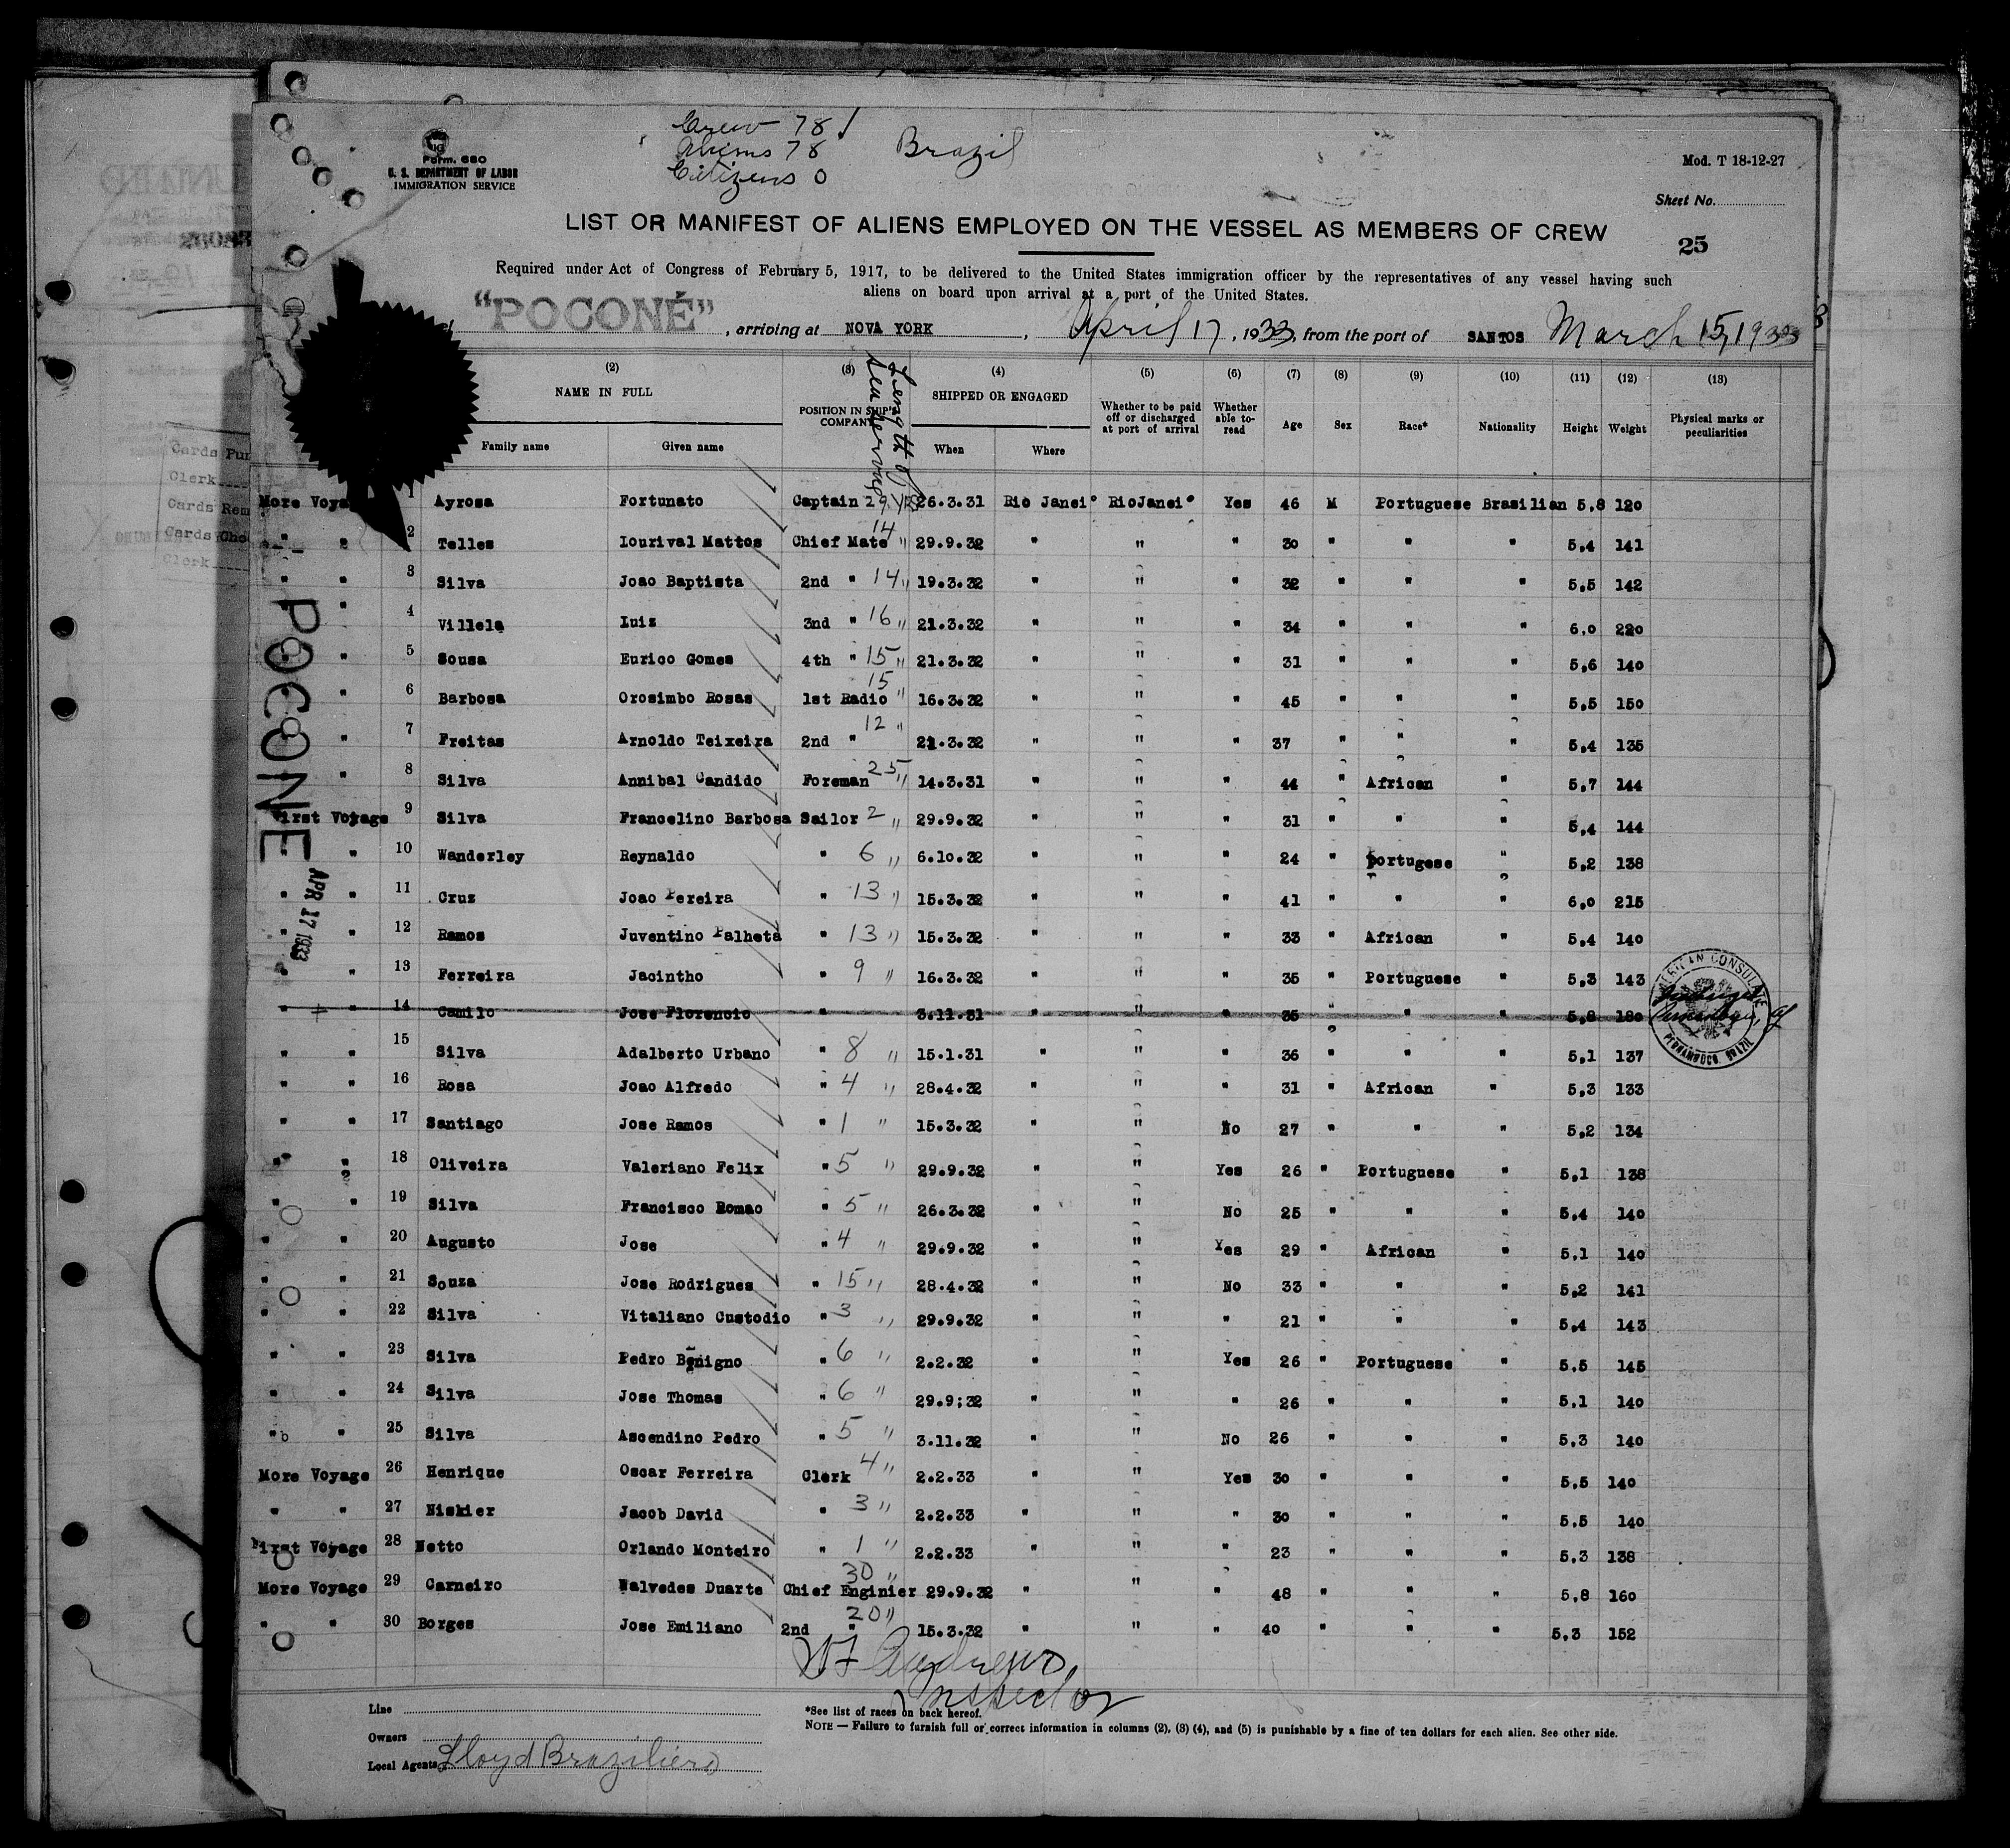 Crew 78
Aliens 78 Brazil
Citizens 0
Form. 680
U. S. DEPARTMENT OF LABOR
IMMIGRATION SERVICE
Mod. T 18-12-27
Sheet No.
25
LIST OR MANIFEST OF ALIENS EMPLOYED ON THE VESSEL AS MEMBERS OF CREW
Required under Act of Congress of February 5, 1917, to be delivered to the United States immigration officer by the representatives of any vessel having such
aliens on board upon arrival at a port of the United States.
"POCONÉ", arriving at NOVA YORK, April 17, 1933, from the port of SANTOS March 15, 1933
(2) (3) (4) (5) (6) (7) (8) (9) (10) (11) (12) (13)
NAME IN FULL
Family name Given name
POSITION IN SHIP'S COMPANY
Length of Sea Service
SHIPPED OR ENGAGED
When Where
Whether to be paid off or discharged at port of arrival
Whether able to read
Age Sex Race* Nationality Height Weight
Physical marks or peculiarities
More Voya 1 Ayrosa Fortunato Captain 29 Yrs 26.3.31 Rio Janei° RioJanei° Yes 46 M Portuguese Brasilian 5,8 120
" " 2 Telles Lourival Mattos Chief Mate 14 " 29.9.32 " " " 30 " " " 5,4 141
" " 3 Silva Joao Baptista 2nd " 14 " 19.3.32 " " " 32 " " " 5,5 142
" 4 Villela Luiz 3nd " 16 " 21.3.32 " " " 34 " " " 6,0 220
" " 5 Sousa Eurico Gomes 4th " 15 " 21.3.32 " " " 31 " " " 5,6 140
" 6 Barbosa Orosimbo Rosas 1st Radio 15 " 16.3.32 " " " 45 " " " 5,5 150
" 7 Freitas Arnoldo Teixeira 2nd " 12 " 21.3.32 " " " 37 " " " 5,4 135
" 8 Silva Annibal Candido Foreman 25 " 14.3.31 " " " 44 " African " 5,7 144
First Voyage 9 Silva Francelino Barbosa Sailor 2 " 29.9.32 " " " 31 " " " 5,4 144
" 10 Wanderley Reynaldo " 6 " 6.10.32 " " " 24 " Portugese " 5,2 138
" " 11 Cruz Joao Pereira " 13 " 15.3.32 " " " 41 " " " 6,0 215
" " 12 Ramos Juventino Palheta " 13 " 15.3.32 " " " 33 " African " 5,4 140
" " 13 Ferreira Jacintho " 9 " 16.3.32 " " " 35 " Portuguese " 5,3 143
" " 14 Camilo Jose Florencio " 3.11.31 " " " 35 " " " 5,8 180
" " 15 Silva Adalberto Urbano " 8 " 15.1.31 " " " 36 " " " 5,1 137
" " 16 Rosa Joao Alfredo " 4 " 28.4.32 " " " 31 " African " 5,3 133
" " 17 Santiago Jose Ramos " 1 " 15.3.32 " " No 27 " " " 5,2 134
" " 18 Oliveira Valeriano Felix " 5 " 29.9.32 " " Yes 26 " Portuguese " 5,1 138
" " 19 Silva Francisco Romao " 5 " 26.3.32 " " No 25 " " " 5,4 140
" " 20 Augusto Jose " 4 " 29.9.32 " " Yes 29 " African " 5.1 140
" " 21 Souza Jose Rodrigues " 15 " 28.4.32 " " No 33 " " " 5,2 141
" " 22 Silva Vitaliano Custodio " 3 " 29.9.32 " " " 21 " " " 5,4 143
" " 23 Silva Pedro Benigno " 6 " 2.2.32 " " Yes 26 " Portuguese " 5.5 145
" " 24 Silva Jose Thomas " 6 " 29.9;32 " " " 26 " " " 5.1 140
" " 25 Silva Ascendino Pedro " 5 " 3.11.32 " " No 26 " " " 5,3 140
More Voyage 26 Henrique Oscar Ferreira Clerk 4 " 2.2.33 " " Yes 30 " " " 5,5 140
" " 27 Niskier Jacob David " 3 " 2.2.33 " " " 30 " " " 5,5 140
First Voyage 28 Netto Orlando Monteiro " 1 " 2.2.33 " " " 23 " " " 5,3 138
More Voyage 29 Carneiro Walvedes Duarte Chief Enginier 30 " 29.9.32 " " " 48 " " " 5,8 160
" " 30 Borges Jose Emiliano 2nd " 20 " 15.3.32 " " " 40 " " " 5,3 152
POCONE
APR 17 1933
AMERICAN CONSULATE
PERNAMBUCO, BRAZIL
Andrews,
Inspector
Line
Owners
Local Agents Lloyd Braziliero
*See list of races on back hereof.
NOTE — Failure to furnish full or correct information in columns (2), (3) (4), and (5) is punishable by a fine of ten dollars for each alien. See other side.
Cards Fur
Clerk
Cards Rem
Cards Cho
Clerk